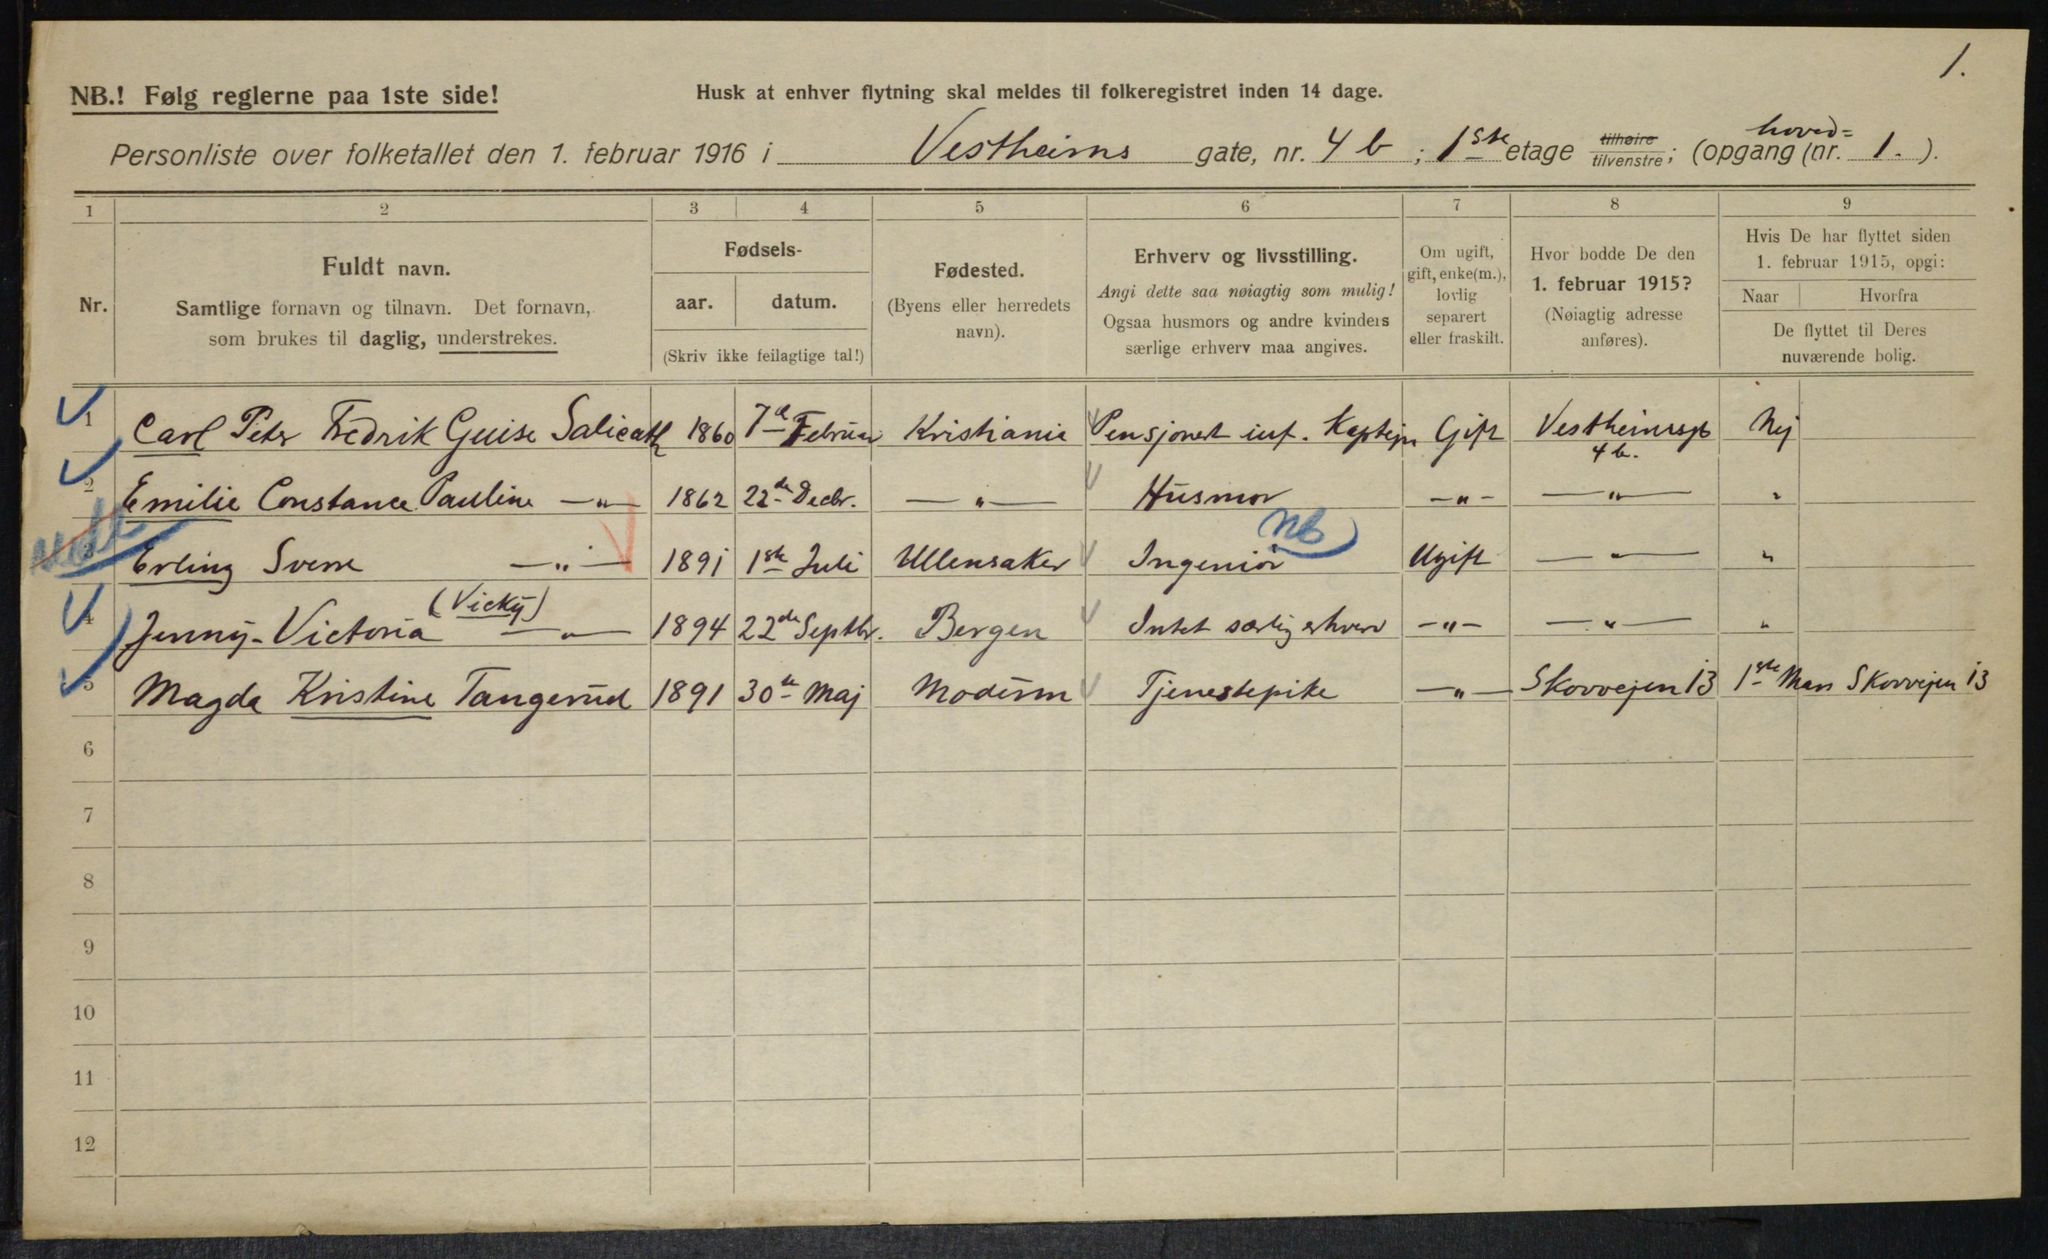 1.
NB.! Følg reglerne paa 1ste side!
Husk at enhver flytning skal meldes til folkeregistret inden 14 dage.
Personliste over folketallet den 1. februar 1916 i Vestheims gate, nr. 4 b ; 1ste etage tilhøire tilvenstre; (hoved= opgang (nr. 1. ).
1 2 3 4 5 6 7 8 9
Nr.
Fuldt navn.
Samtlige fornavn og tilnavn. Det fornavn,
som brukes til daglig, understrekes.
Fødsels-
aar. datum.
(Skriv ikke feilagtige tal!)
Fødested.
(Byens eller herredets
navn).
Erhverv og livsstilling.
Angi dette saa nøiagtig som mulig!
Ogsaa husmors og andre kvinders
særlige erhverv maa angives.
Om ugift,
gift, enke(m.),
lovlig
separert
eller fraskilt.
Hvor bodde De den
1. februar 1915?
(Nøiagtig adresse
anføres).
Hvis De har flyttet siden
1. februar 1915, opgi:
Naar Hvorfra
De flyttet til Deres
nuværende bolig.
1 Carl Peter Fredrik Guise Salicath 1860 7d Februar Kristiania Pensjonert inf. Kaptejn Gift Vestheimsgt 4 b. Nej
2 Emilie Constance Pauline —„— 1862 22de Decbr. —„— Husmor —„— —„— „
3 Erling Sverre —„— 1891 1ste Juli Ullensaker Ingeniør NB Ugift —„— „
4 Jenny-Victoria (Vicky) —„— 1894 22de Septbr. Bergen Intet særlig erhverv —„— —„— „
5 Magda Kristine Tangerud 1891 30te Maj Modum Tjenestepike —„— Skovvejen 13 1ste Mars Skovvejen 13
6
7
8
9
10
11
12